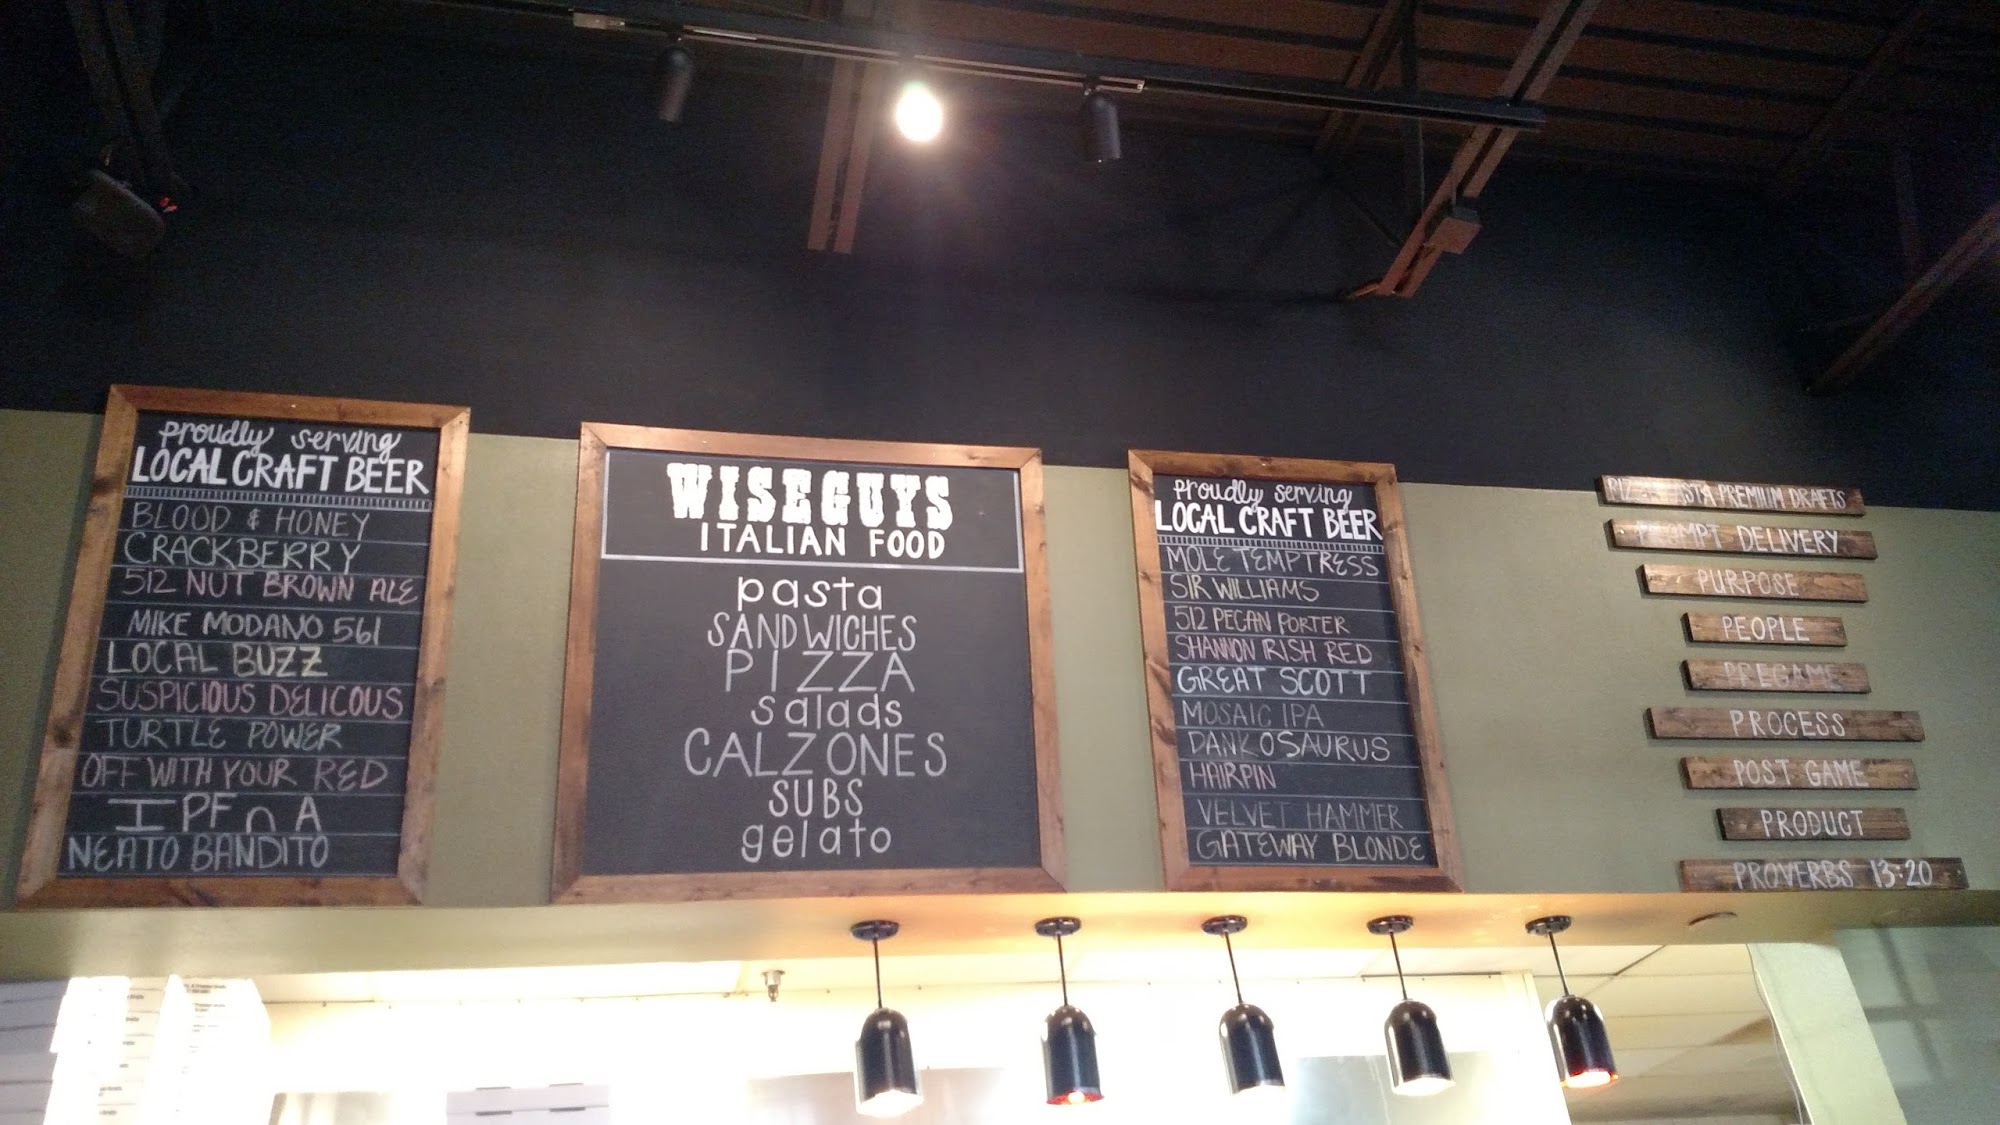 proudly serving
LOCAL CRAFT BEER
BLOOD & HONEY
CRACKBERRY
512 NUT BROWN ALE
MIKE MODANO 561
LOCAL BUZZ
SUSPICIOUS DELICOUS
TURTLE POWER
OFF WITH YOUR RED
I PF n A
NEATO BANDITO
WISEGUYS
ITALIAN FOOD
pasta
SANDWICHES
PIZZA
salads
CALZONES
SUBS
gelato
proudly serving
LOCAL CRAFT BEER
MOLE TEMPTRESS
SIR WILLIAMS
512 PECAN PORTER
SHANNON IRISH RED
GREAT SCOTT
MOSAIC IPA
DANKOSAURUS
HAIRPIN
VELVET HAMMER
GATEWAY BLONDE
PREMIUM DRAFTS
PROMPT DELIVERY
PURPOSE
PEOPLE
PREGAME
PROCESS
POST GAME
PRODUCT
PROVERBS 13:20